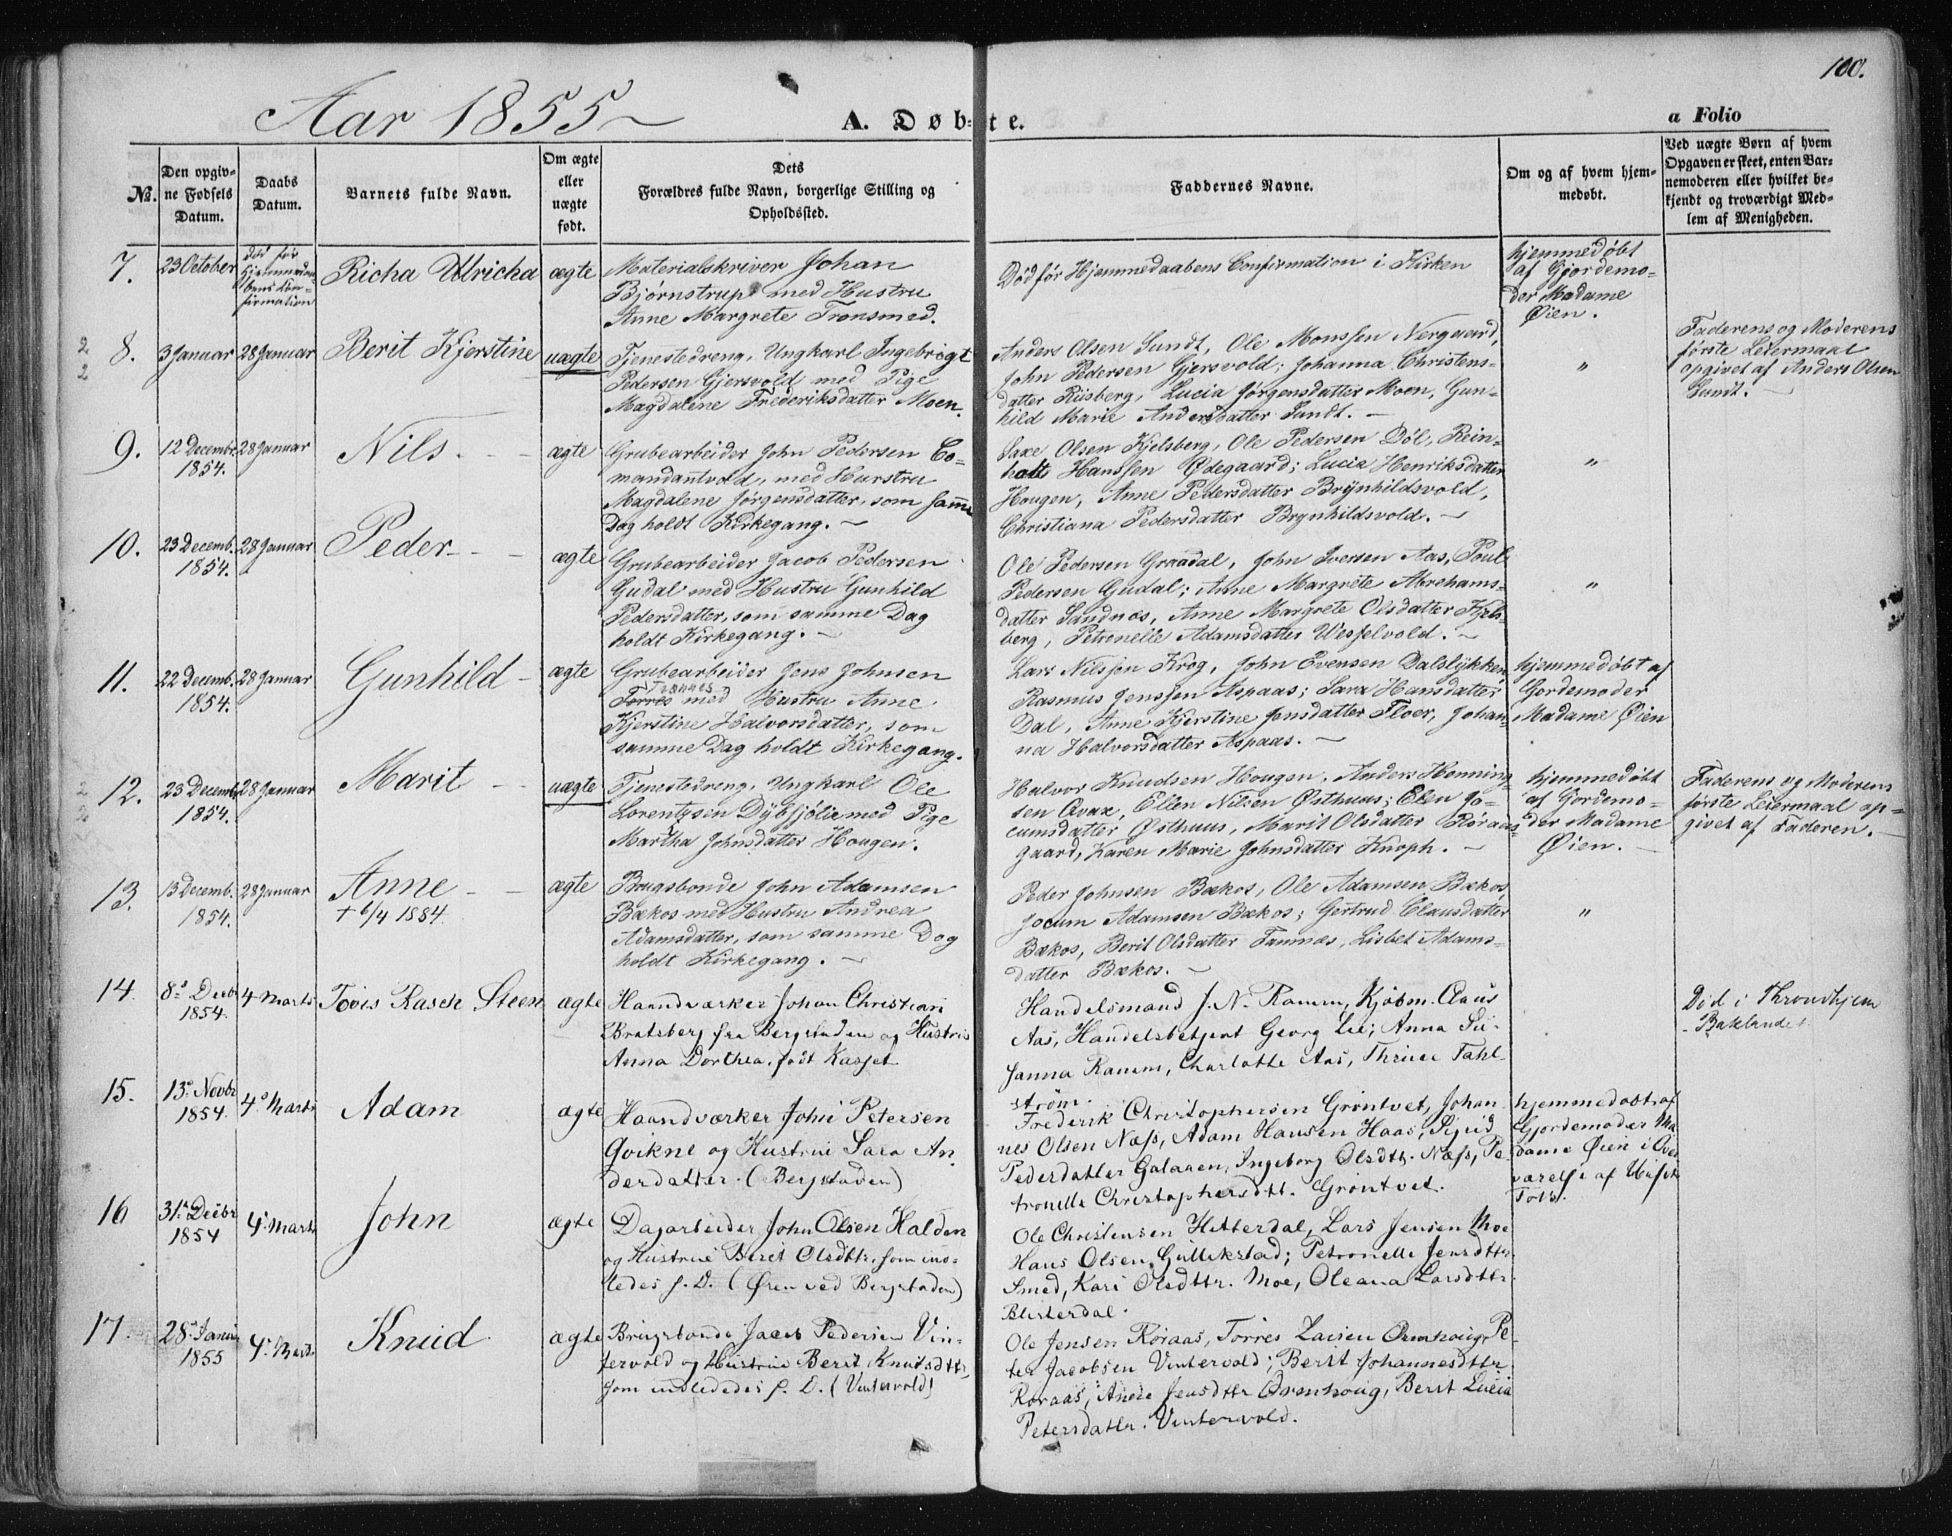 100.
Aar 1855
A. Døbte.
a Folio
№.
Den opgivne Fødsels Datum.
Daabs Datum.
Barnets fulde Navn.
Om ægte eller uægte født.
Dets Forældres fulde Navn, borgerlige Stilling og Opholdssted.
Faddernes Navne.
Om og af hvem hjemmedøbt.
Ved uægte Børn af hvem Opgaven er skeet, enten Barnemoderen eller hvilket bekjendt og troværdigt Medlem af Menigheden.
7.
23 October
død før Hjemmedaabens Confirmation
Richa Ulricha
ægte
Materialskriver Johan
Bjørnstrup med Hustru
Anne Margrete Tronsmed.
Død før Hjemmedaabens Confirmation i Kirken
hjemmedøbt
af Gjordemo-
der Madame
Øien.
8.
3 Januar
28 Januar
Berit Kjerstine
uægte
Tjenestedreng, Ungkarl Ingebrigt
Pedersen Gjersvold med Pige
Magdalene Frederiksdatter Moen.
Anders Olsen Sundt, Ole Monssen Nergaard,
John Pedersen Gjersvold; Johanna Christens-
datter Riisberg, Lucia Jørgensdatter Moen, Gun-
hild Marie Andersdatter Sundt. —
"
Faderens og Moderens
første Leiermaal
opgivet af Anders Olsen
Sundt. —
9.
12 Decembr.
1854.
28 Januar
Nils
ægte
Grubearbeider John Pedersen Co-
mandantvold, med Hurstru
Magdalene Jørgensdatter, som samme
Dag holdt Kirkegang. —
Saxe Olsen Kjelsberg, Ole Pedersen Døl, Rein-
holt Hanssen Ødegaard; Lucia Henriksdatter
Hougen, Anne Pedersdatter Brynhildsvold,
Christiana Pedersdatter Brynhildsvold. —
"
10.
23 Decemb.
1854.
28 Januar
Peder
ægte
Grubearbeider Jacob Pedersen
Gudal med Hustru Gunhild
Pedersdatter, som samme Dag
holdt Kirkegang. —
Ole Pedersen Graadal, John Iversen Aas, Poul
Pedersen Gudal; Anne Margrete Abrehams-
datter Sandnæs, Anne Margrete Olsdatter Kjels-
berg, Petronelle Adamsdatter Wesselvold. —
"
11.
22 Decemb.
1854.
28 Januar
Gunhild
ægte
Grubearbeider Jens Johnsen
Torres med Hustru Anne
Kjerstine Halvorsdatter, som
samme Dag holdt Kirkegang.
Lars Nilssen Krog, John Evensen Dalslykken,
Rasmus Jenssen Aspaas; Sara Hansdatter
Dal, Anne Kjerstine Jensdatter Floer, Johan-
na Halvorsdatter Aspaas. —
hjemmedøbt af
Gordemoder
Madame Øien
12.
23 Decembr
1854.
28 Januar
Marit
uægte
Tjenestedreng, Ungkarl Ole
Lorentzsen Dybfjølie med Pige
Martha Johnsdatter Hougen.
Halvor Knudsen Hougen, Anders Henning-
sen Qvax, Ellen Nilsen Østhuus; Elen Jo-
cumsdatter Østhuus, Marit Olsdatter Røraas-
gaard, Karen Marie Johnsdatter Knoph. —
hjemmedøbt
af Gordemo-
der Madame
Øien. —
Faderens og Moderens
første Leiermaal op-
givet af Faderen. —
13.
13 Decemb.
1854.
28 Januar
Anne
† 6/4 1884.
ægte
Brugsbonde John Adamsen
Bækos med Hustru Andrea
Adamsdatter, som samme Dag
holdt Kirkegang. —
Peder Johnsen Bækos, Ole Adamsen Bækos,
Jocum Adamsen Bækos; Gertrud Clausdatter
Bækos, Berit Olsdatter Tamnæs, Lisbet Adams-
datter Bækos. —
"
14.
8de Decbr
1854.
4 Marts
Tovis Rasch Steen
ægte
Haandværker Johan Christian
Bratsberg fra Bergstaden og Hustrue
Anna Dorthea, født Kasset
Handelsmand J. N. Ramm, Kjøbm. Claus
Aas, Handelsbetjent Georg Lie; Anna Su-
sanna Ramm, Charlotte Aas, Thrine Tahl-
strøm.
Død i Throndhjem
- Baklandet
15.
13de Novbr
1854.
4de Marts
Adam
ægte
Haandværker John Petersen
Qvikne og Hustrue Sara An-
dersdatter. (Bergstaden)
Frederik Christophersen Grøntvet, Johan
nes Olsen Næss, Adam Hansen Haas; Sigrid
Pedersdatter Galaaen, Ingeborg Olsdtr. Næss, Pe-
tronelle Christophersdtt. Grøntvet.
hjemmedøbt af
Gjordemoder Ma
dame Øien i Over
værelse af
16
31te Decbr
1854
4de Marts
John
ægte
Dagarbeider John Olsen Halden
og Hustrue Beret Olsdttr, som ind-
ledes s. D. (Øren ved Bergstaden)
Ole Christensen Hitterdal, Lars Jensen Moe
Hans Olsen Gullikstad; Petronelle Jensdttr.
Smed, Kari Olsdttr. Moe, Oleana Larsdttr.
Blisterdal.
17.
28de Januar
1855
4de Marts
Knud
ægte
Brugsbonde Jacob Pedersen Vin-
tervold og Hustrue Berit Knutsdttr,
som indledes s. D. (Vintervold)
Ole Jensen Røraas, Torres Larsen Ormhoug, Pe-
ter Jacobsen Vintervold; Berit Johannesdttr
Røraas, Anne Jensdttr Ormhoug, Berit Lucia
Petersdattr. Vintervold.